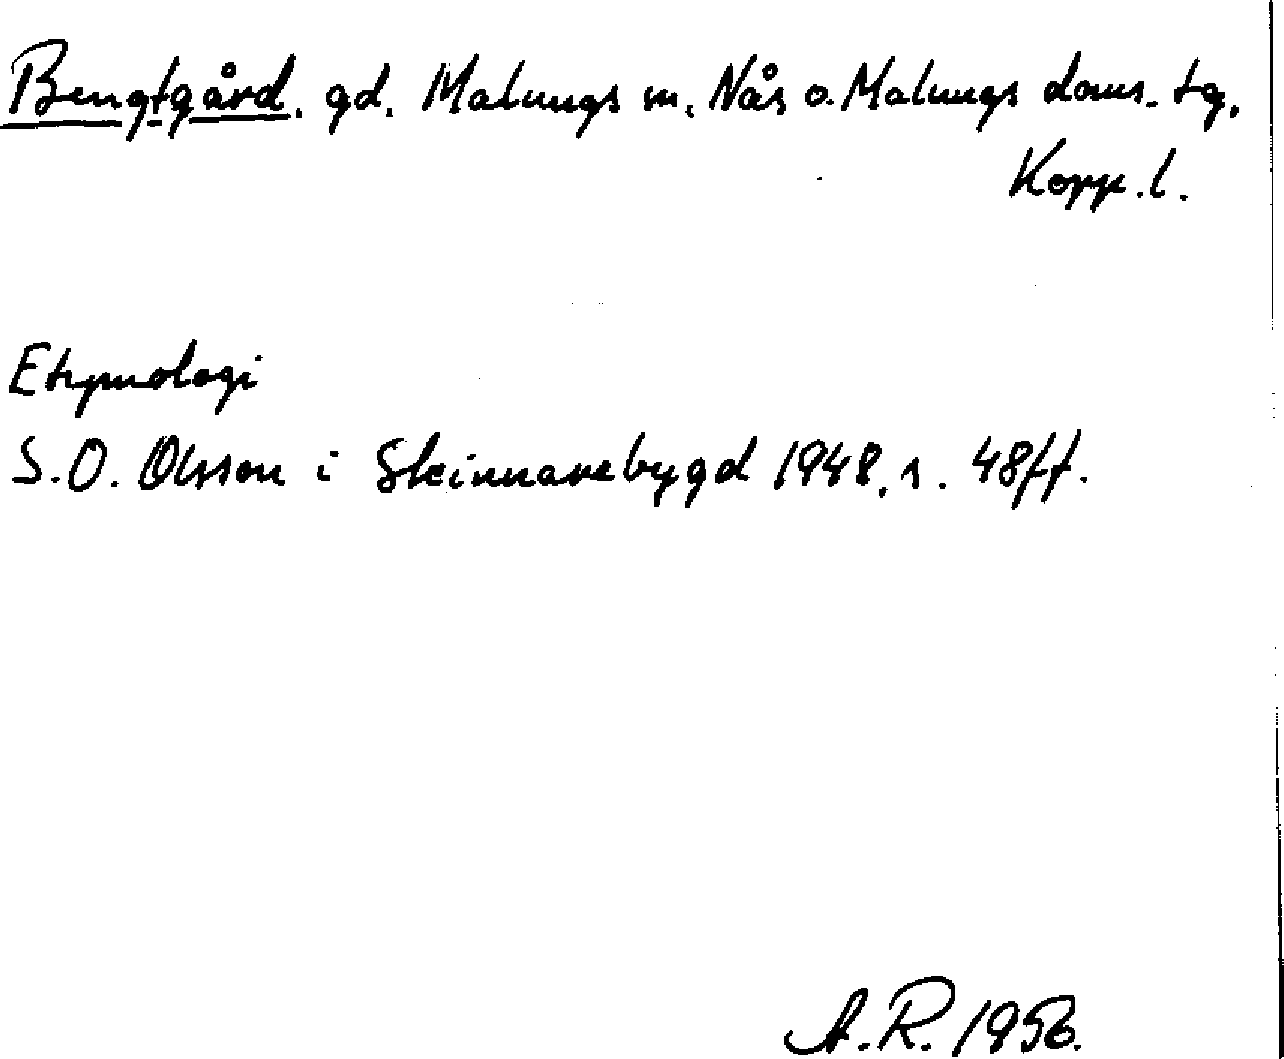 Bengtgård. gd. Malungs sn. Nås o. Malungs doms. tg.
Kopp. l.
Etymologi
S. O. Olsson i Skinnarebygd 1948, s. 48ff.
A. R. 1956.